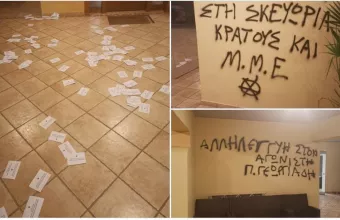 ΣΤΗ ΣΚΕΥΩΡΙΑ
ΚΡΑΤΟΥΣ ΚΑΙ
Μ.Μ.Ε
ΑΛΛΗΛΕΓΓΥΗ ΣΤΟΝ
ΑΓΩΝΙΣΤΗ
Π. ΓΕΩΡΓΙΑΔΗ